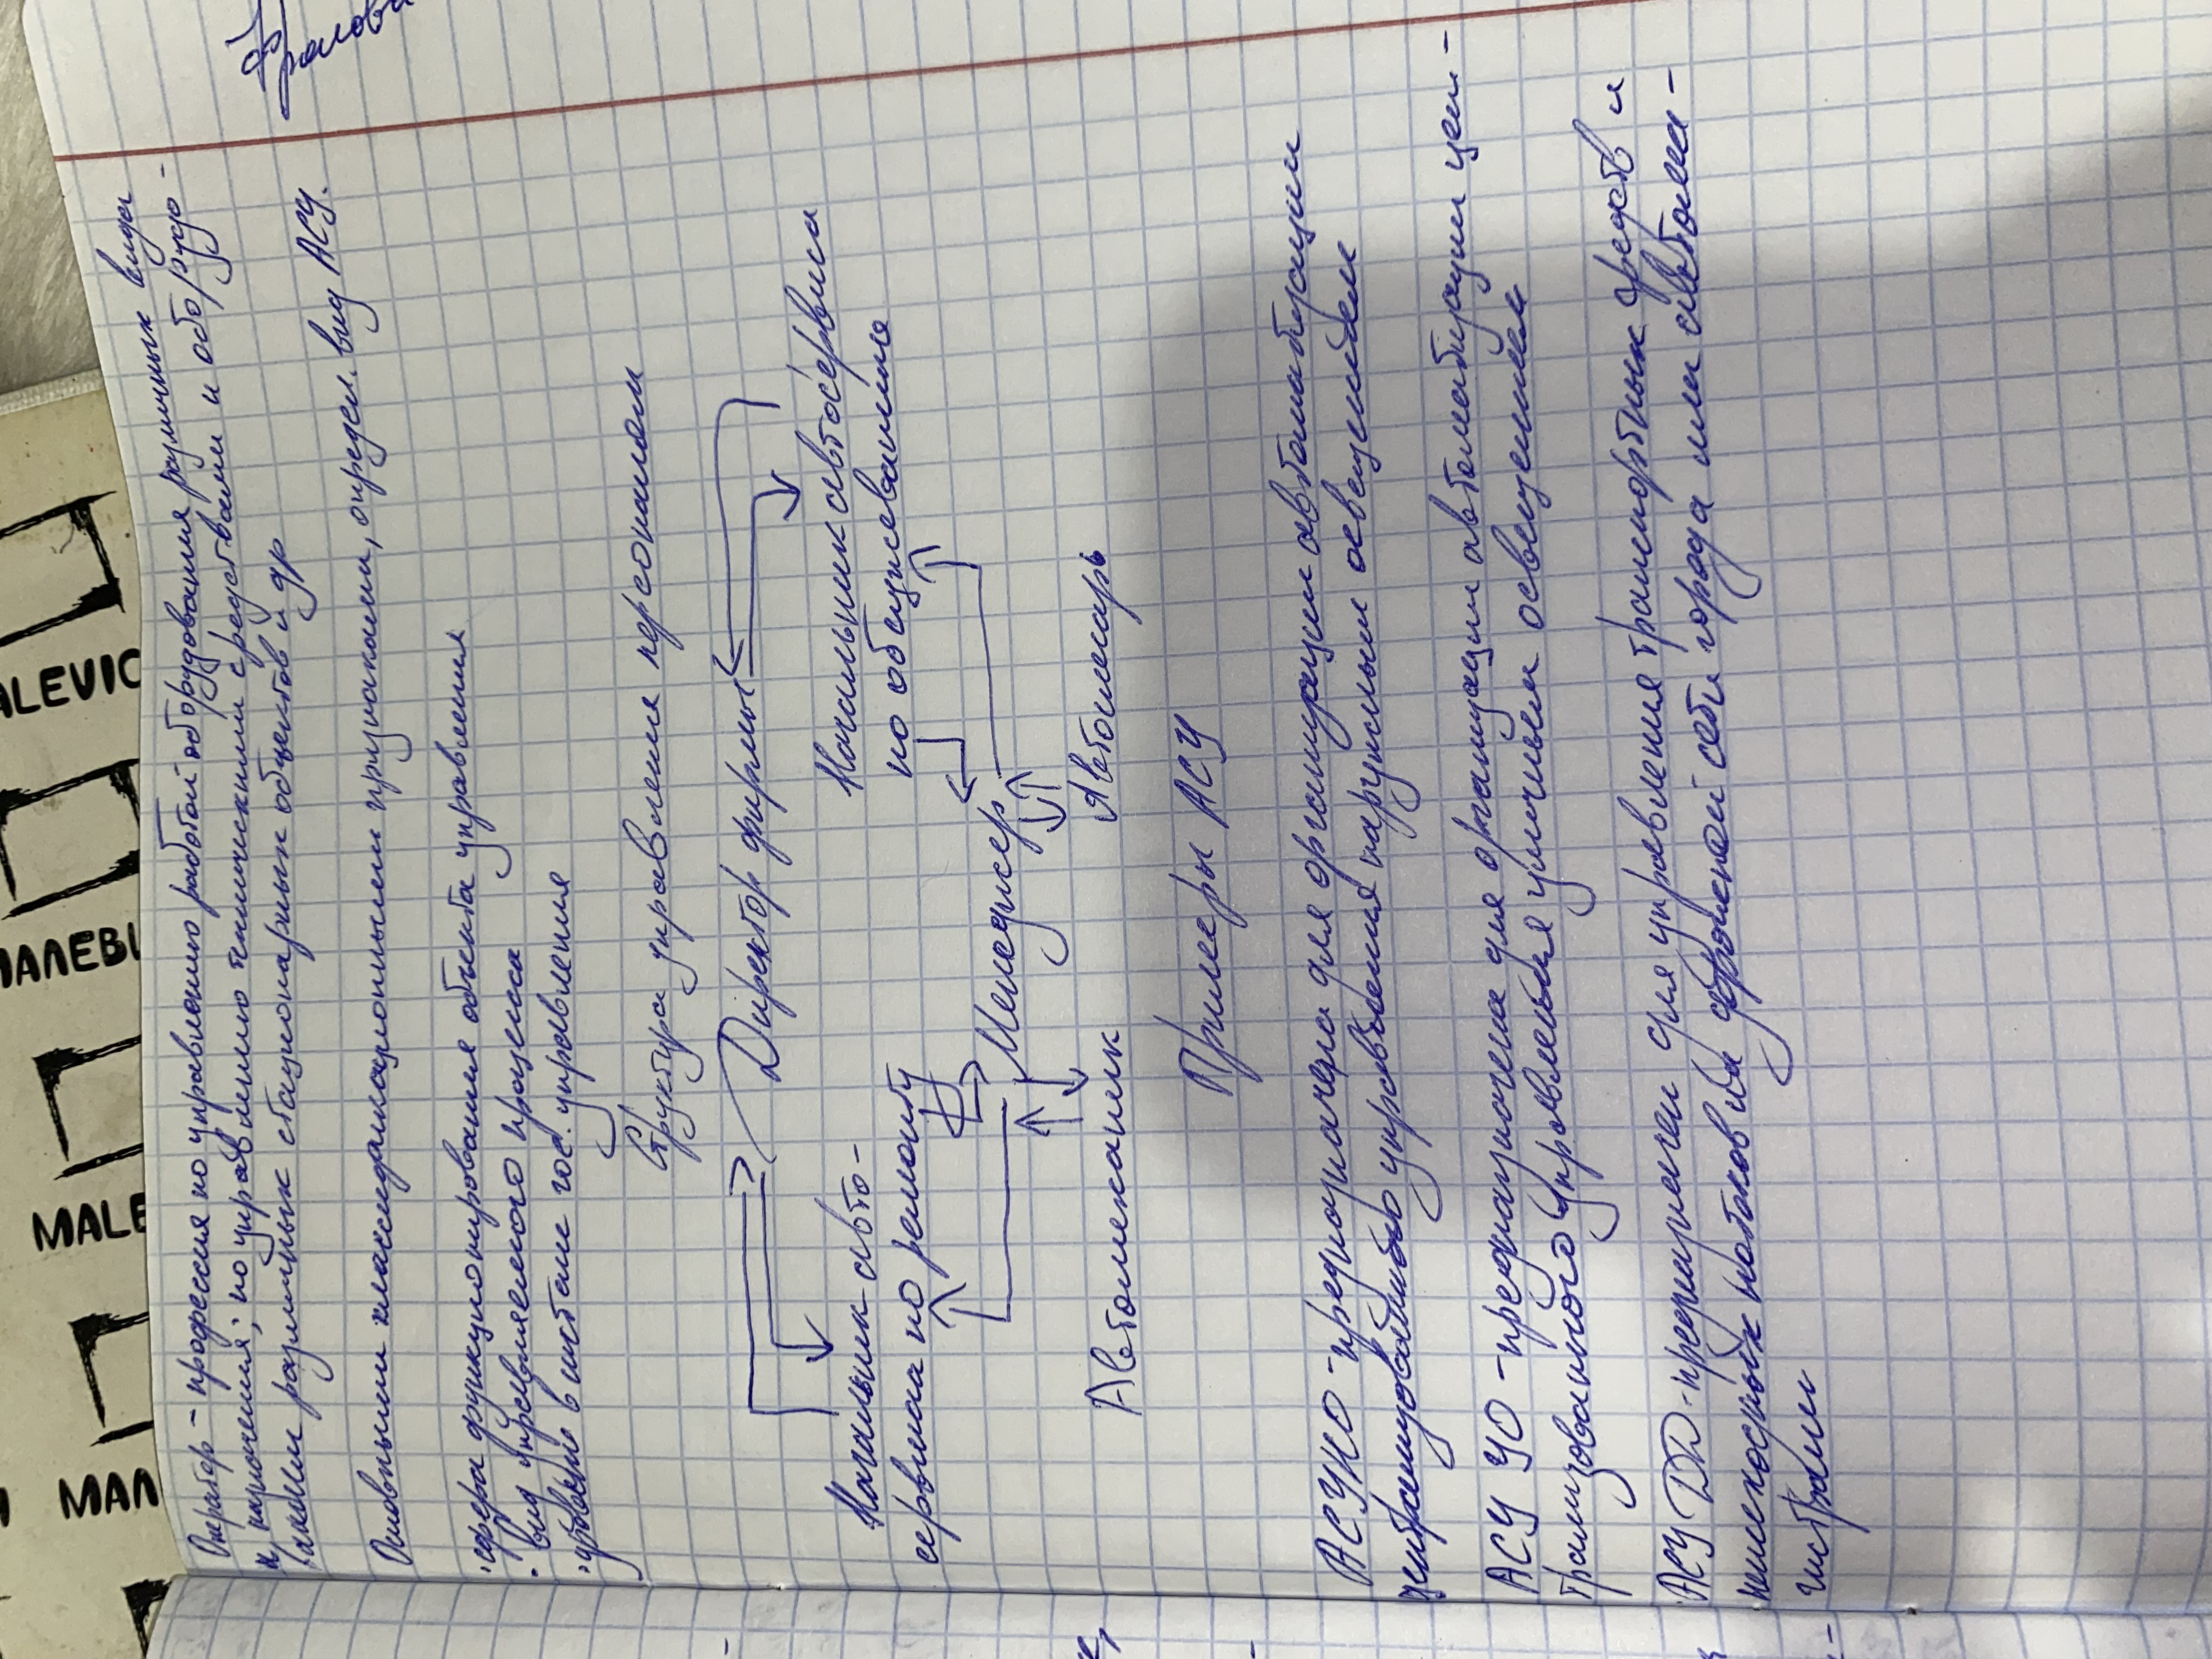 Оператор - профессия по управлению работой оборудования различных вида
и назначения; по управлению техническими средствами и обору-
различных стационарных объектов и др
Основными классификационными признаками, определ. вид АСУ.
· сфера функционирования объекта управления
· вид управляемого процесса
· уровень в системе гос. управления
Структура управления персоналом
Директор фирмы
Начальник авто-
сервиса по ремонту
Начальник автосервиса
по обслуживания
Менеджер
Автомеханик
Автослесарь
Примеры АСУ
АСУНО - предназначена для организации автоматизации
централизованного управления наружным освещением
АСУ УО - предназначена для организации автоматизации цен-
трализованного управления уличным освещением
АСУ ДД - предназначен для управления транспортных средств и
пешеходных потоков на дорожной сети города или автома-
гистрали
MALEVIC
МАЛЕВИ
MALE
МАЛ